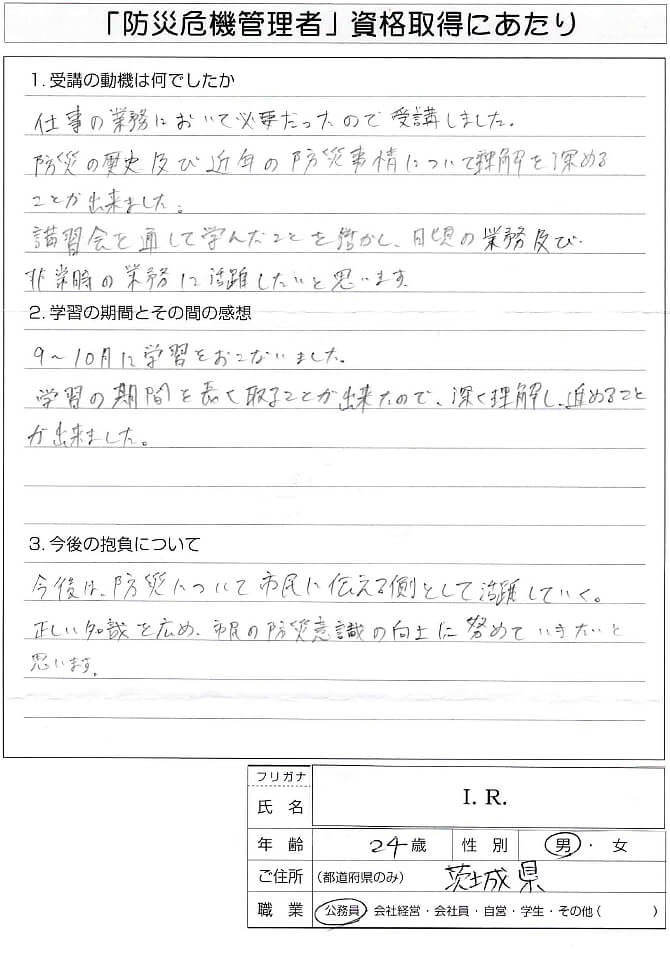 「防災危機管理者」資格取得にあたり
1. 受講の動機は何でしたか
仕事の業務において必要だったので受講しました。
防災の歴史及び近年の防災事情について理解を深める
ことが出来ました。
講習会を通して学んだことを活かし、日頃の業務及び
非常時の業務に活躍したいと思います。
2. 学習の期間とその間の感想
9～10月に学習をおこないました。
学習の期間を長く取ることが出来たので、深く理解し、進めること
が出来ました。
3. 今後の抱負について
今後は、防災について市民に伝える側として活躍していく。
正しい知識を広め、市民の防災意識の向上に努めていきたいと
思います。
フリガナ
氏名 I. R.
年齢 24歳 性別 男・女
ご住所 (都道府県のみ) 茨城県
職業 公務員 会社経営・会社員・自営・学生・その他( )